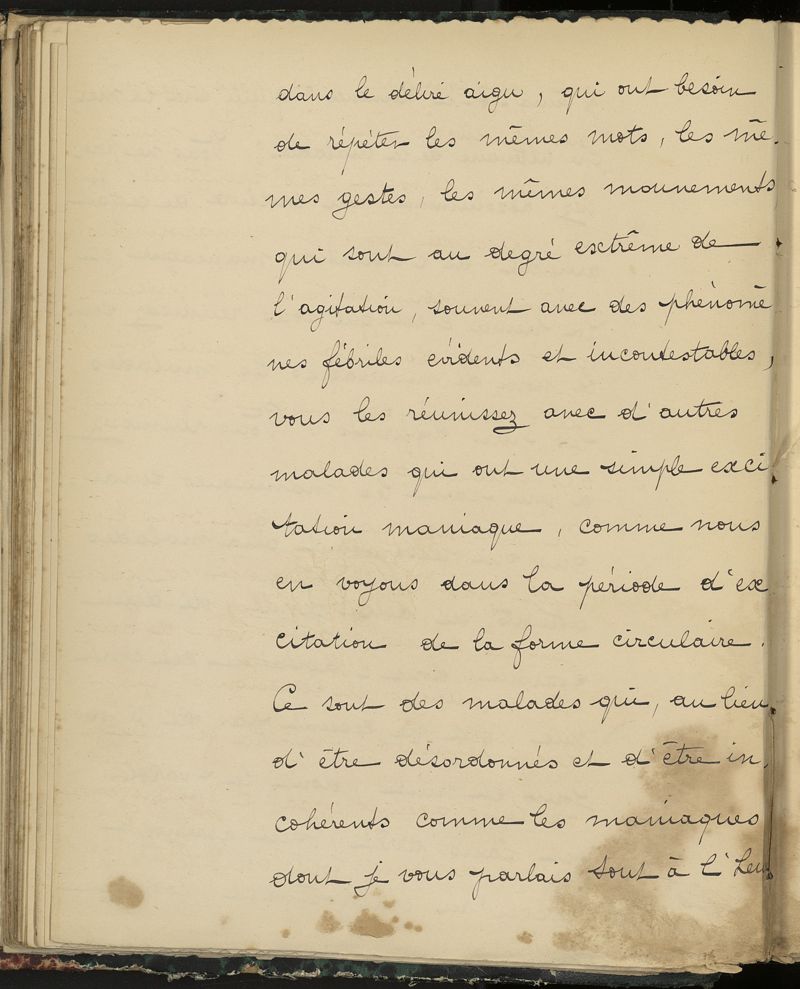 dans le délire aigu, qui ont besoin
de répéter les mêmes mots, les mê-
mes gestes, les mêmes mouvements
qui sont au degré extrême de
l'agitation, souvent avec des phénomè
nes fébriles évidents et incontestables,
vous les réunissez avec d'autres
malades qui ont une simple exci
tation maniaque, comme nous
en voyons dans la période d'ex
citation de la forme circulaire.
Ce sont des malades qui, au lieu
d'être désordonnés et d'être in.
cohérents comme les maniaques
dont je vous parlais sont à l'heu